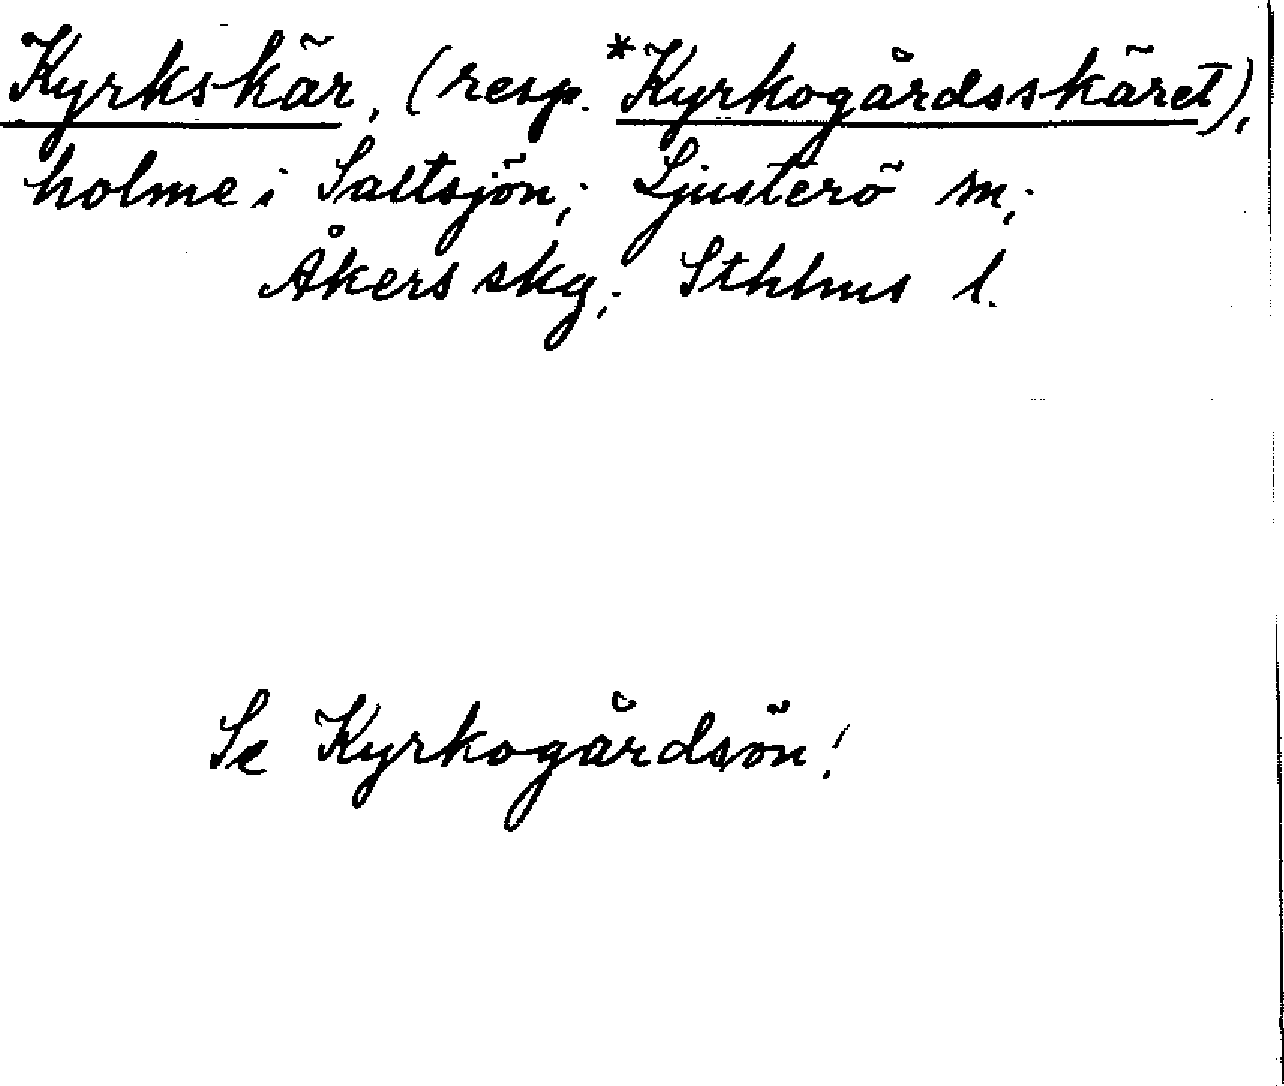 Kyrkskär, (resp. *Kyrkogårdsskäret),
holme i Saltsjön; Ljusterö sn;
Åkers skg; Sthlms l.
Se Kyrkogårdsön!